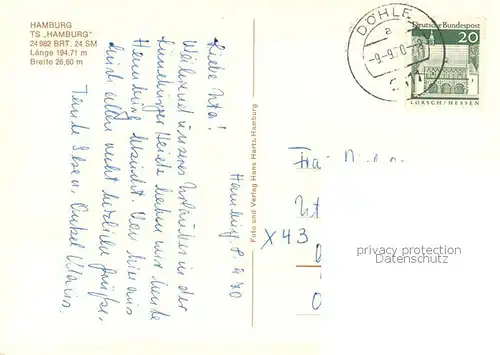 HAMBURG
TS „HAMBURG"
24 962 BRT, 24 SM
Länge 194,71 m
Breite 26,60 m
Hamburg, 8.9.70
Liebe Uta!
Während unseres Urlaubes in der
Lüneburger Heide haben wir heute
Hamburg besucht. Von hier aus
seid allen recht herzliche Grüße.
Tante Ilse u. Onkel Klaus.
Foto und Verlag Hans Hartz Hamburg
DÖHLE
a
-9.-9.70-8
Deutsche Bundespost
20
LORSCH/HESSEN
X43
privacy protection
Datenschutz